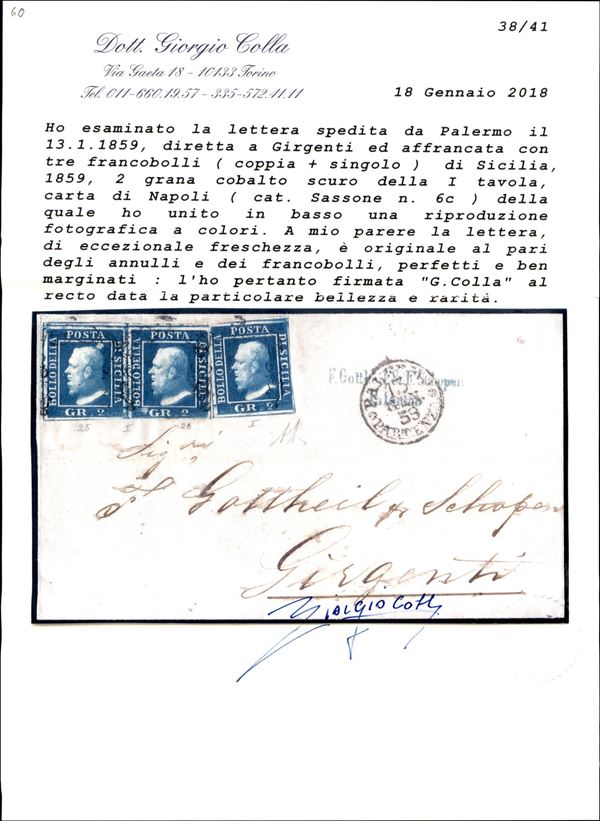 60
38/41
Dott. Giorgio Colla
Via Gaeta 18 - 10133 Torino
Tel. 011-660.19.57 - 335-572.11.11
18 Gennaio 2018
Ho esaminato la lettera spedita da Palermo il
13.1.1859, diretta a Girgenti ed affrancata con
tre francobolli ( coppia + singolo ) di Sicilia,
1859, 2 grana cobalto scuro della I tavola,
carta di Napoli ( cat. Sassone n. 6c ) della
quale ho unito in basso una riproduzione
fotografica a colori. A mio parere la lettera,
di eccezionale freschezza, è originale al pari
degli annulli e dei francobolli, perfetti e ben
marginati : l'ho pertanto firmata "G.Colla" al
recto data la particolare bellezza e rarità.
BOLLO DELLA POSTA DI SICILIA GR 2
BOLLO DELLA POSTA DI SICILIA GR 2
BOLLO DELLA POSTA DI SICILIA GR 2
25 I 26 I
Gottheil & Schopen
Girgenti
Giorgio Colla